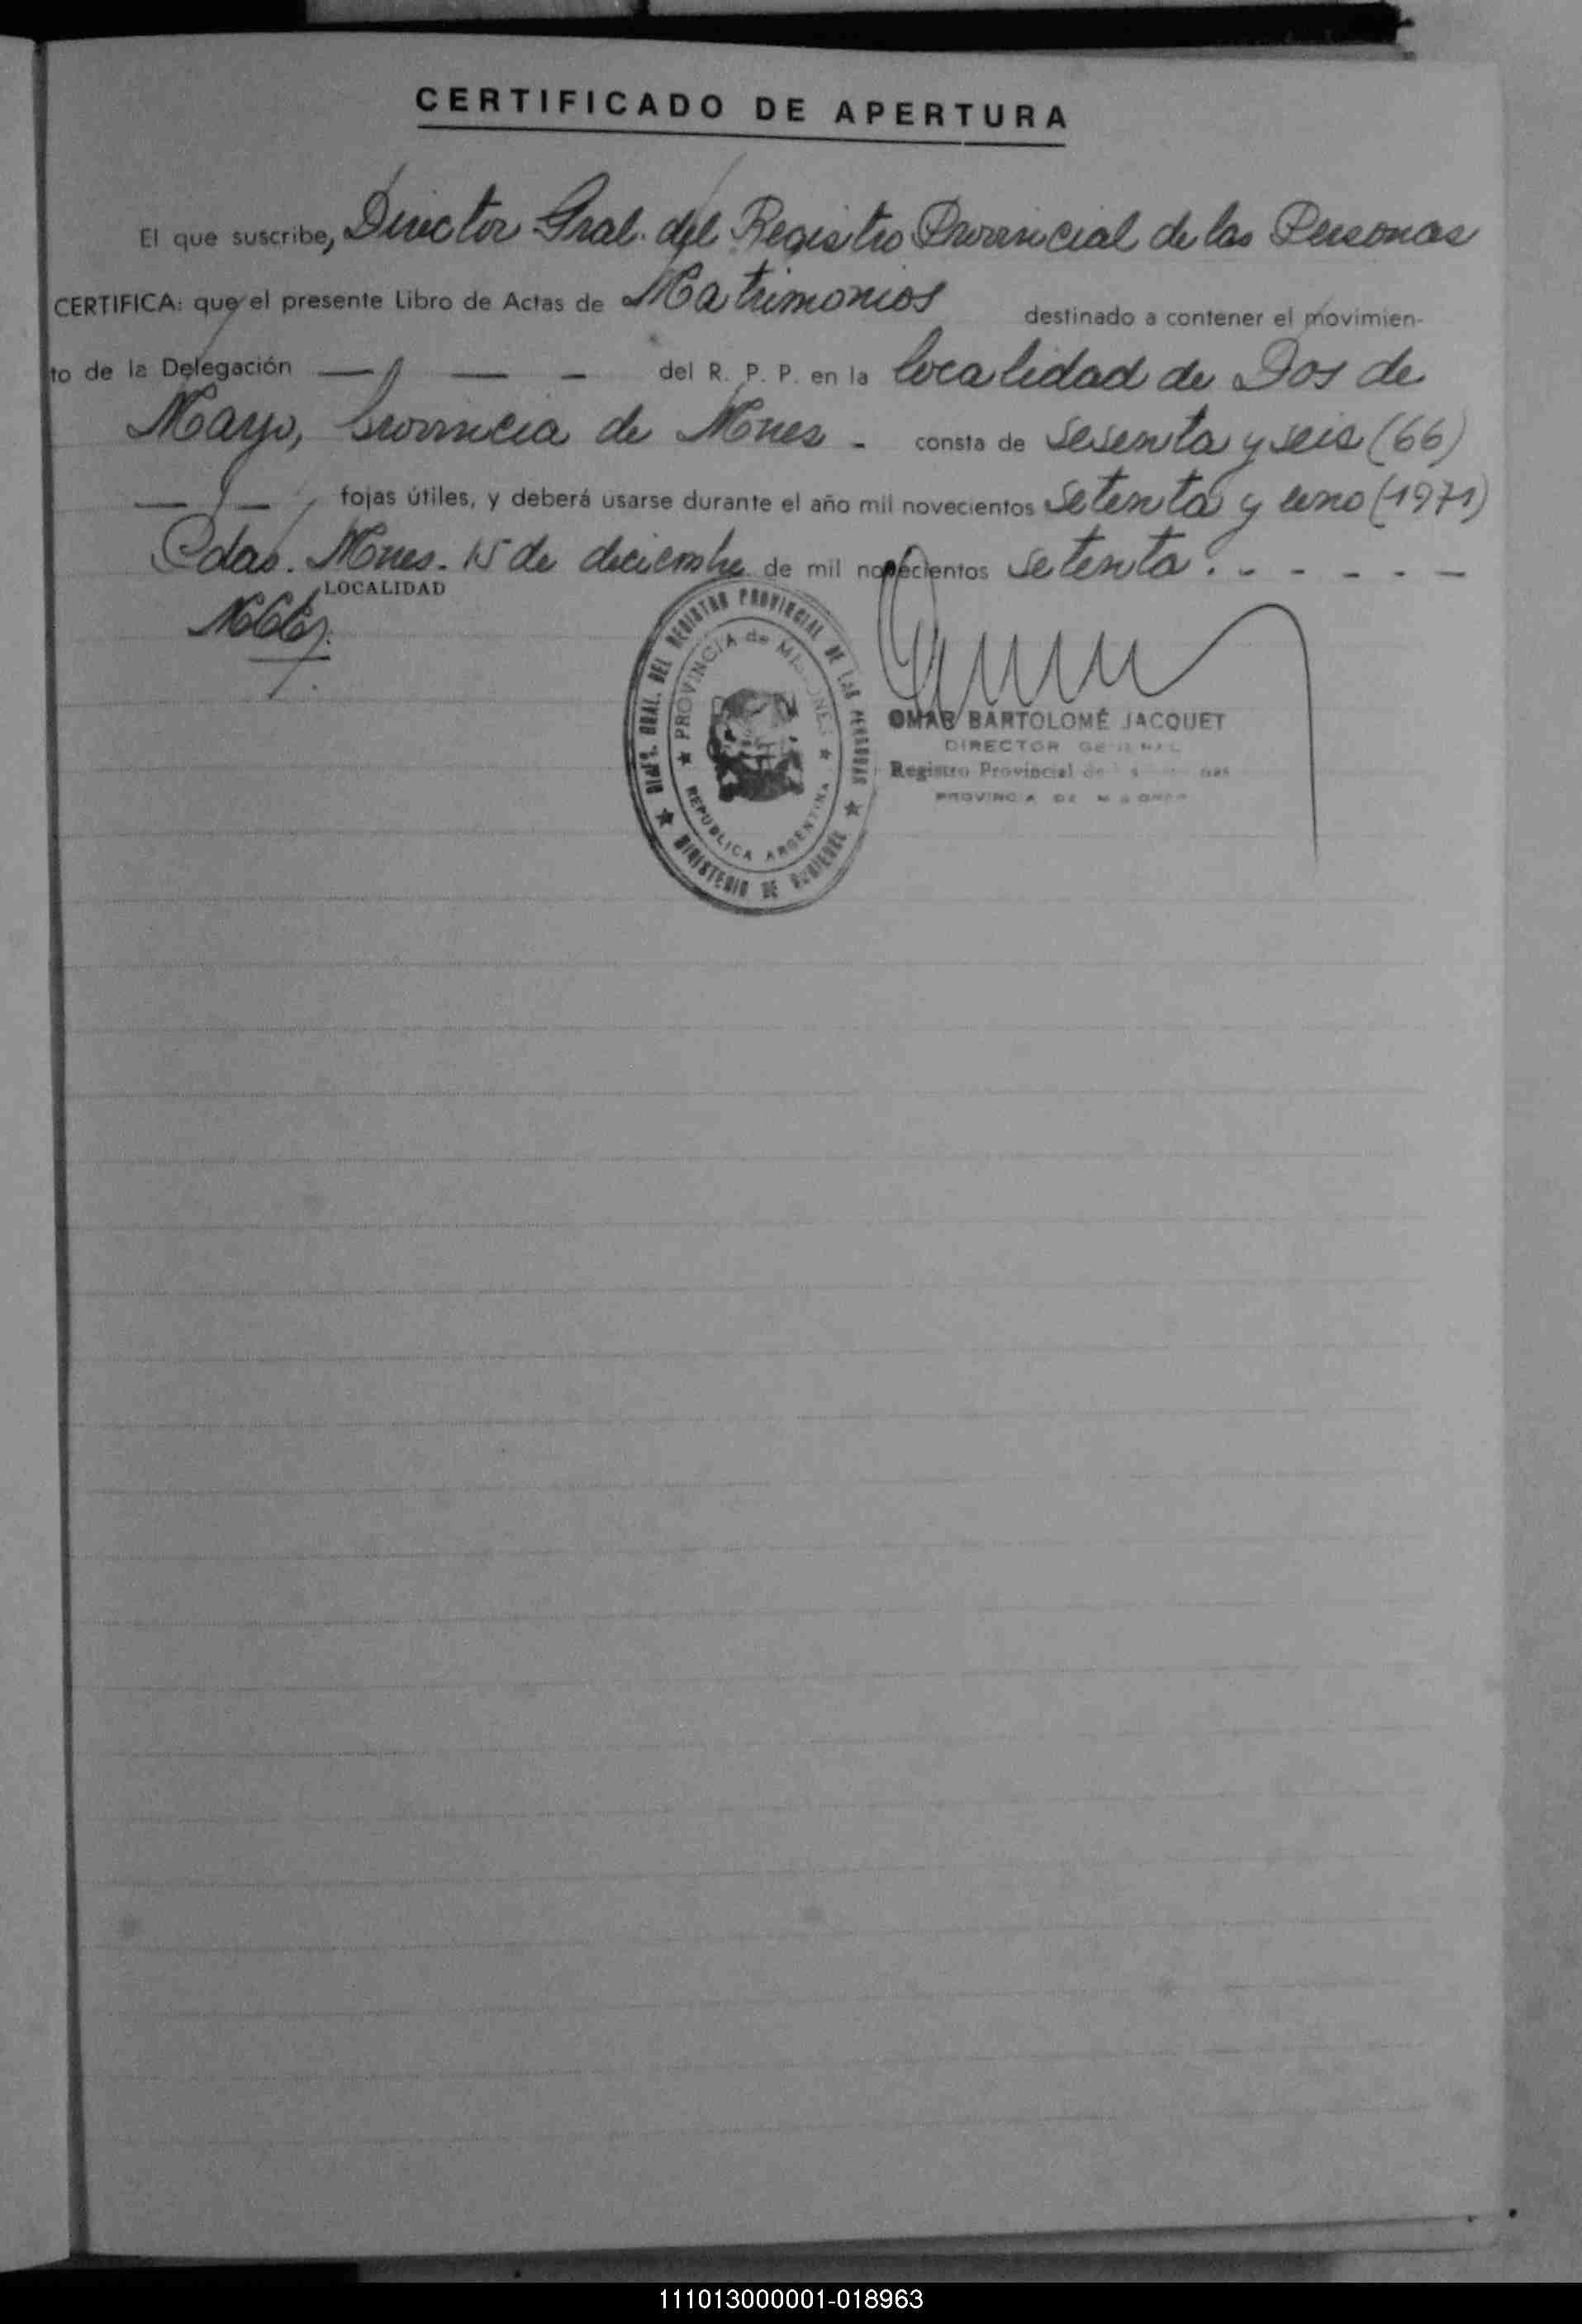 CERTIFICADO DE APERTURA
El que suscribe, Director Gral. del Registro Provincial de las Personas
CERTIFICA: que el presente Libro de Actas de Matrimonios destinado a contener el movimien-
to de la Delegación — — — del R. P. P. en la localidad de Dos de
Mayo, provincia de Mnes - consta de sesenta y seis (66)
— — fojas útiles, y deberá usarse durante el año mil novecientos setenta y uno (1971)
Pdas. Mnes. 15 de diciembre de mil novecientos setenta. - - - - - -
LOCALIDAD
DIRC. GRAL. DEL REGISTRO PROVINCIAL DE LAS PERSONAS
PROVINCIA de MISIONES
REPUBLICA ARGENTINA
MINISTERIO DE GOBIERNO
OMAR BARTOLOMÉ JACQUET
DIRECTOR GENERAL
Registro Provincial de
PROVINCIA DE MISIONES
111013000001-018963